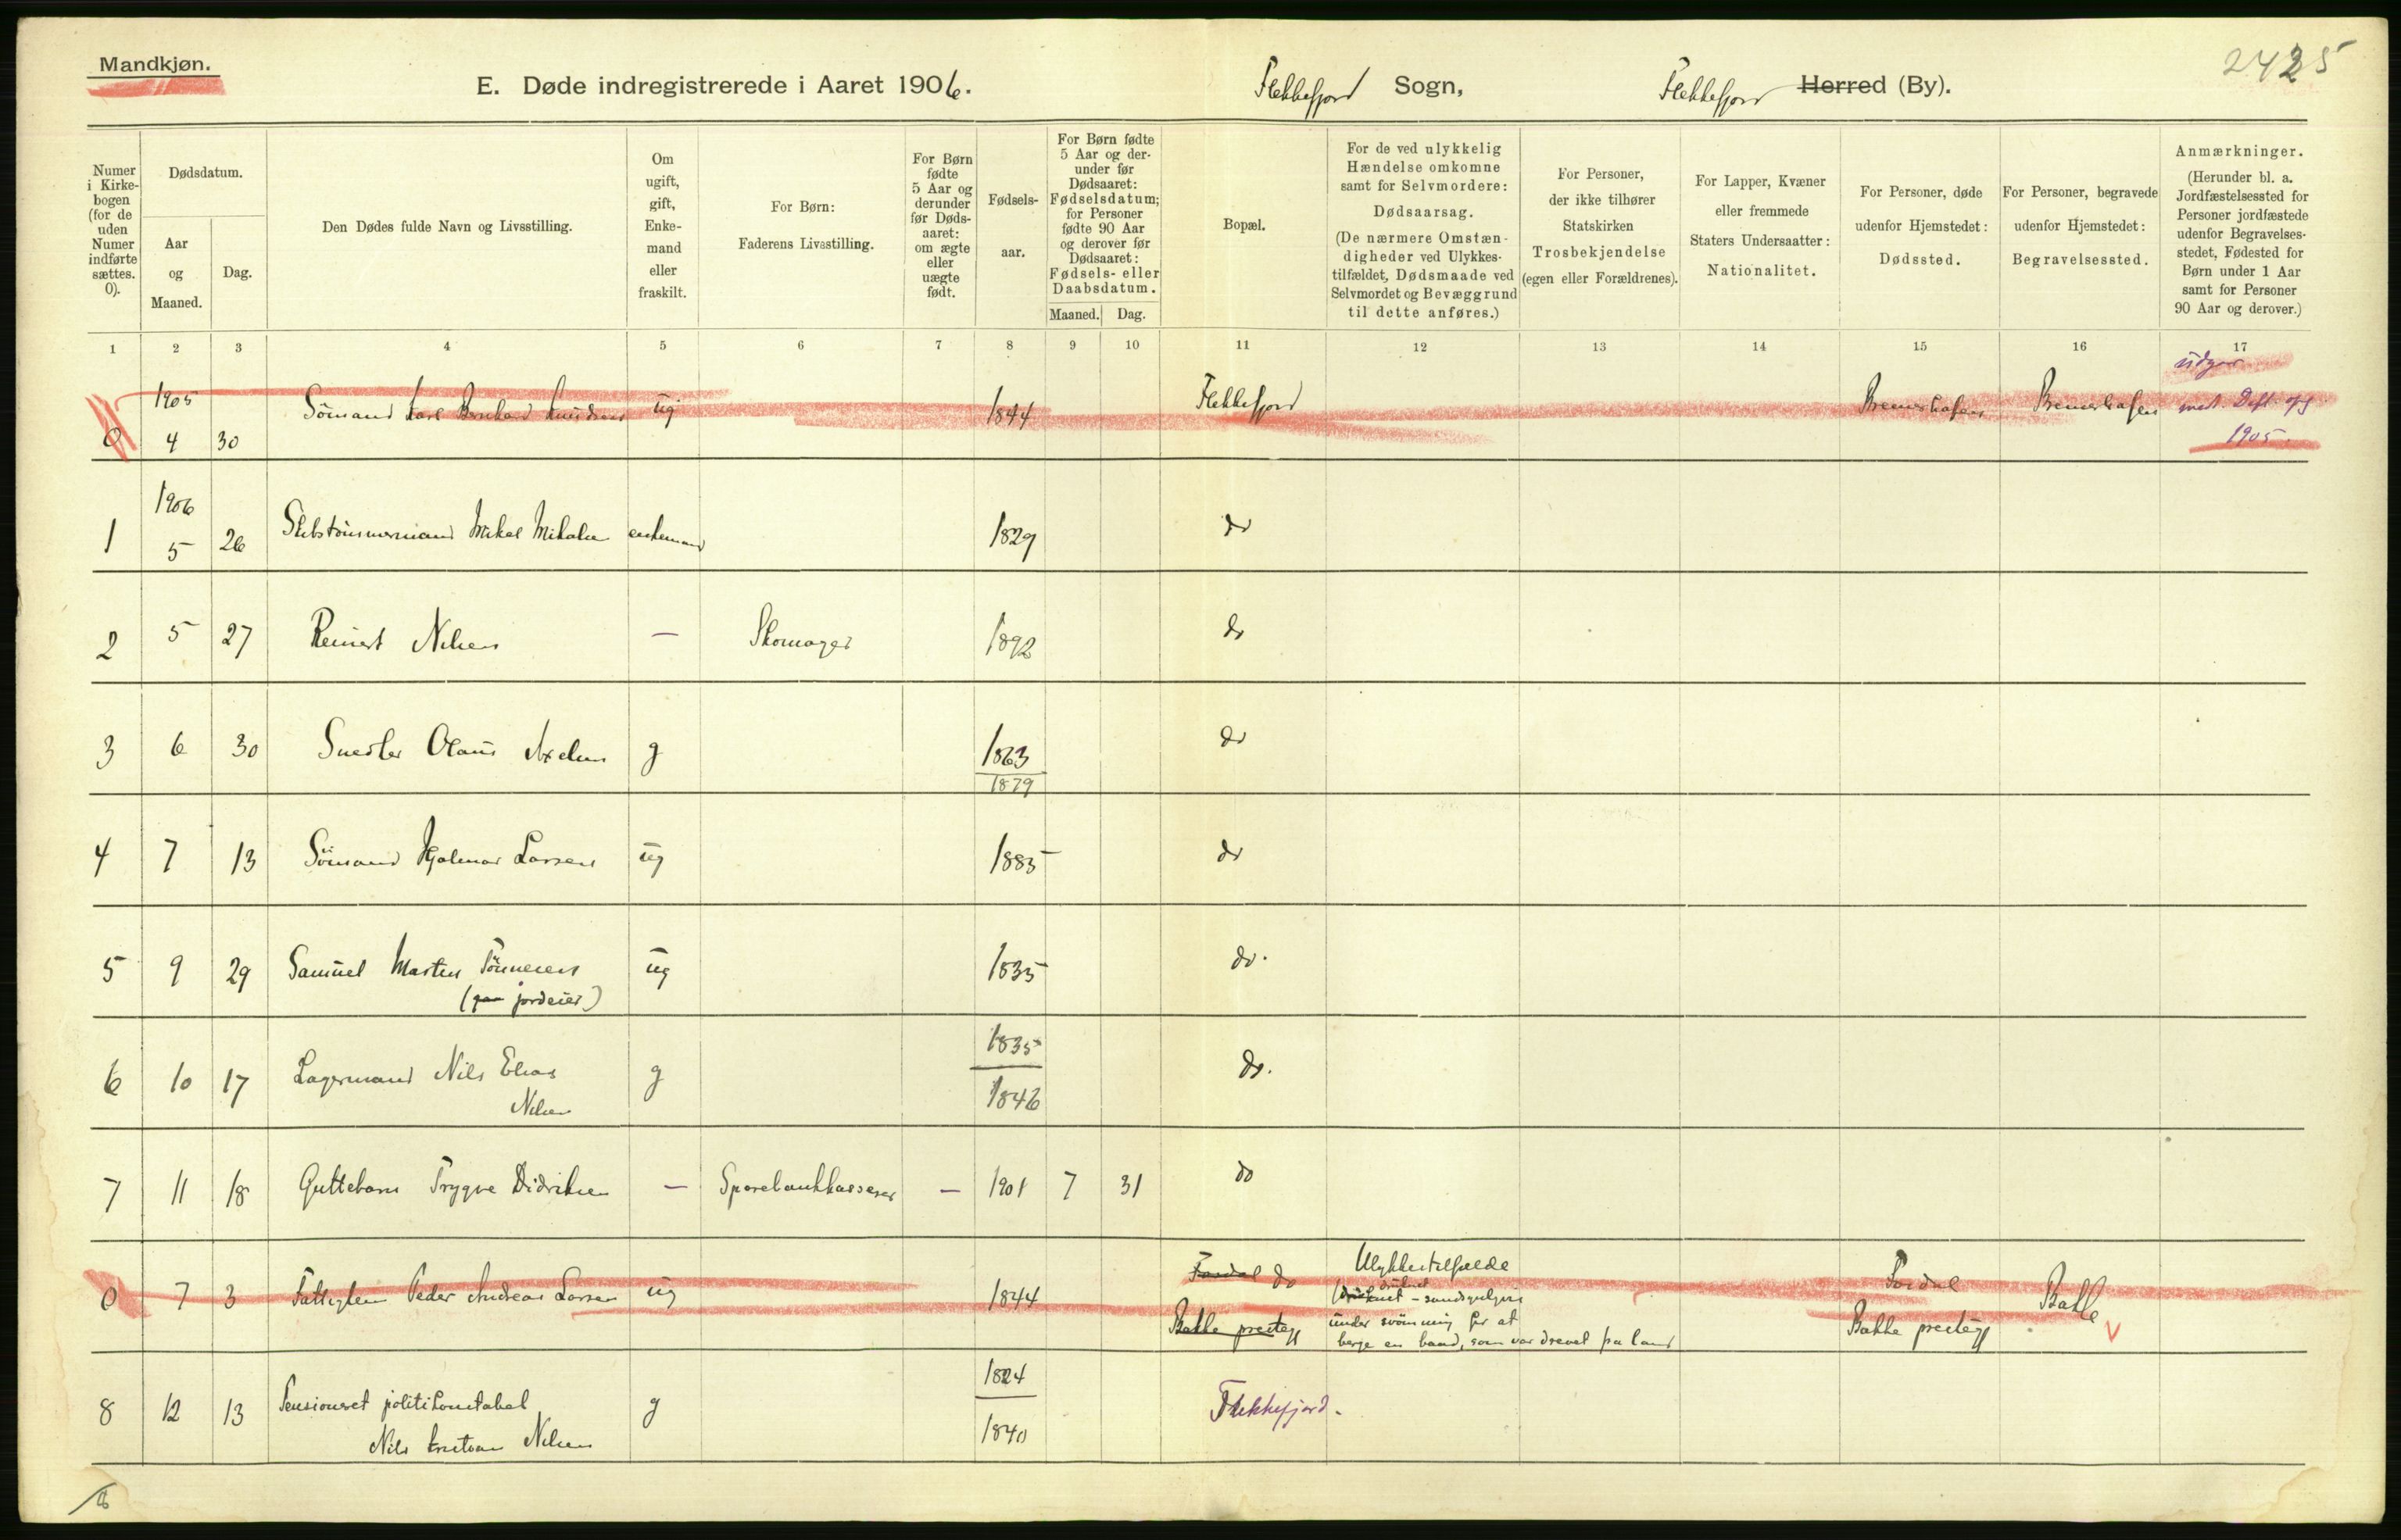 Mandkjøn.
E. Døde indregistrerede i Aaret 1906.
Flekkefjord Sogn,
Flekkefjord Herred (By).
2425
Numer i Kirkebogen (for de uden Numer indførte sættes. 0).
Dødsdatum.
Aar og Maaned.
Dag.
Den Dødes fulde Navn og Livsstilling.
Om ugift, gift, Enkemand eller fraskilt.
For Børn: Faderens Livsstilling.
For Børn fødte 5 Aar og derunder før Dødsaaret: om ægte eller uægte født.
Fødselsaar.
For Børn fødte 5 Aar og derunder før Dødsaaret: Fødselsdatum; for Personer fødte 90 Aar og derover før Dødsaaret: Fødsels- eller Daabsdatum.
Maaned. Dag.
Bopæl.
For de ved ulykkelig Hændelse omkomne samt for Selvmordere: Dødsaarsag. (De nærmere Omstændigheder ved Ulykkestilfældet, Dødsmaade ved Selvmordet og Bevæggrund til dette anføres.)
For Personer, der ikke tilhører Statskirken Trosbekjendelse (egen eller Forældrenes).
For Lapper, Kvæner eller fremmede Staters Undersaatter: Nationalitet.
For Personer, døde udenfor Hjemstedet: Dødssted.
For Personer, begravede udenfor Hjemstedet: Begravelsessted.
Anmærkninger. (Herunder bl. a. Jordfæstelsessted for Personer jordfæstede udenfor Begravelsesstedet, Fødested for Børn under 1 Aar samt for Personer 90 Aar og derover.)
1 2 3 4 5 6 7 8 9 10 11 12 13 14 15 16 17
0 1905 4 30 Sömand Karl Bernhard Knudsen ug 1844 Flekkefjord Bremerhafen Bremerhafen udgaar 1905.
1 1906 5 26 Skibstömmermand Mikal Mikalsen enkemand 1829 do
2 5 27 Reinert Nilsen — Skomager 1892 do
3 6 30 Snedker Olaus Axelsen g 1863 1879 do
4 7 13 Sömand Hjalmar Larsen ug 1885 do
5 9 29 Samuel Martin Tönnesen ug 1835 do.
(jordeier)
6 10 17 Lagermand Nils Elias g 1835 1846 do.
Nilsen
7 11 18 Guttebarn Trygve Didriksen — Sparebankkasserer — 1901 7 31 do
0 7 3 Fattiglem Peder Andreas Larsen ug 1844 Fordal do Ulykkestilfælde Fordal Bakke
(druknet
Bakke prestegj under svömning for at Bakke prestegj
berge en baad, som var drevet fra land
8 12 13 Pensioneret politikonstabel g 1824 1840 Flekkefjord.
Nils Kristian Nilsen
/8